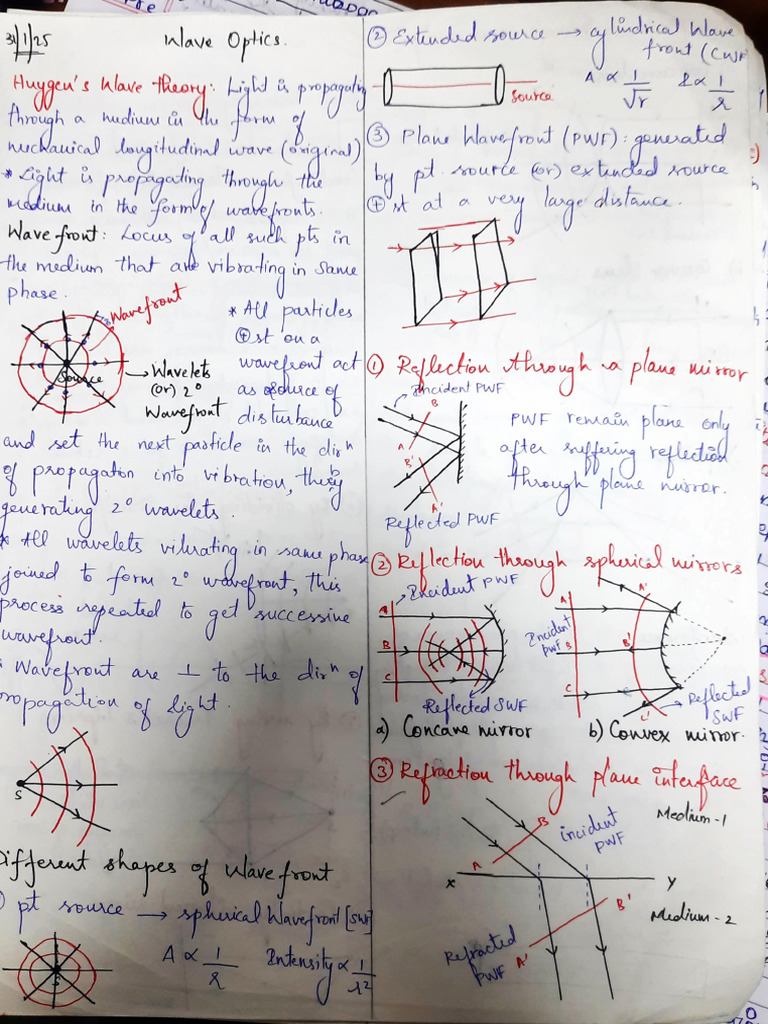 31/1/25
Wave Optics.
Huygen's Wave theory: Light is propagating
through a medium in the form of
mechanical longitudinal wave (original)
* Light is propagating through the
medium in the form of wavefronts.
Wave front: Locus of all such pts in
the medium that are vibrating in same
phase.
Wavefront
Source
Wavelets
(or) 2°
Wavefront
* All particles
⊕st on a
wavefront act
as source of
disturbance
and set the next particle in the dirⁿ
of propagation into vibration, thereby
generating 2° wavelets.
* All wavelets vibrating in same phase
joined to form 2° wavefront, this
process repeated to get successive
wavefront.
* Wavefront are ⊥ to the dirⁿ of
propagation of light.
S
Different shapes of Wavefront
pt source → spherical Wavefront [SWF]
A ∝ 1/r Intensity ∝ 1/r²
② Extended source → cylindrical Wave
front (CWF
source
A ∝ 1/√r I ∝ 1/r
③ Plane Wavefront (PWF): generated
by pt. source (or) extended source
⊕st at a very large distance.
① Reflection through a plane mirror
Incident PWF
B
A
B'
A'
Reflected PWF
PWF remain plane only
after suffering reflection
through plane mirror.
② Reflection through spherical mirrors
Incident PWF
A
B
C
Reflected SWF
a) Concave mirror
A
A'
Incident
PWF
B
B'
C
C'
Reflected
SWF
b) Convex mirror.
③ Refraction through plane interface
Medium-1
B
incident
PWF
A
X
Y
B'
Medium-2
Refracted
PWF
A'